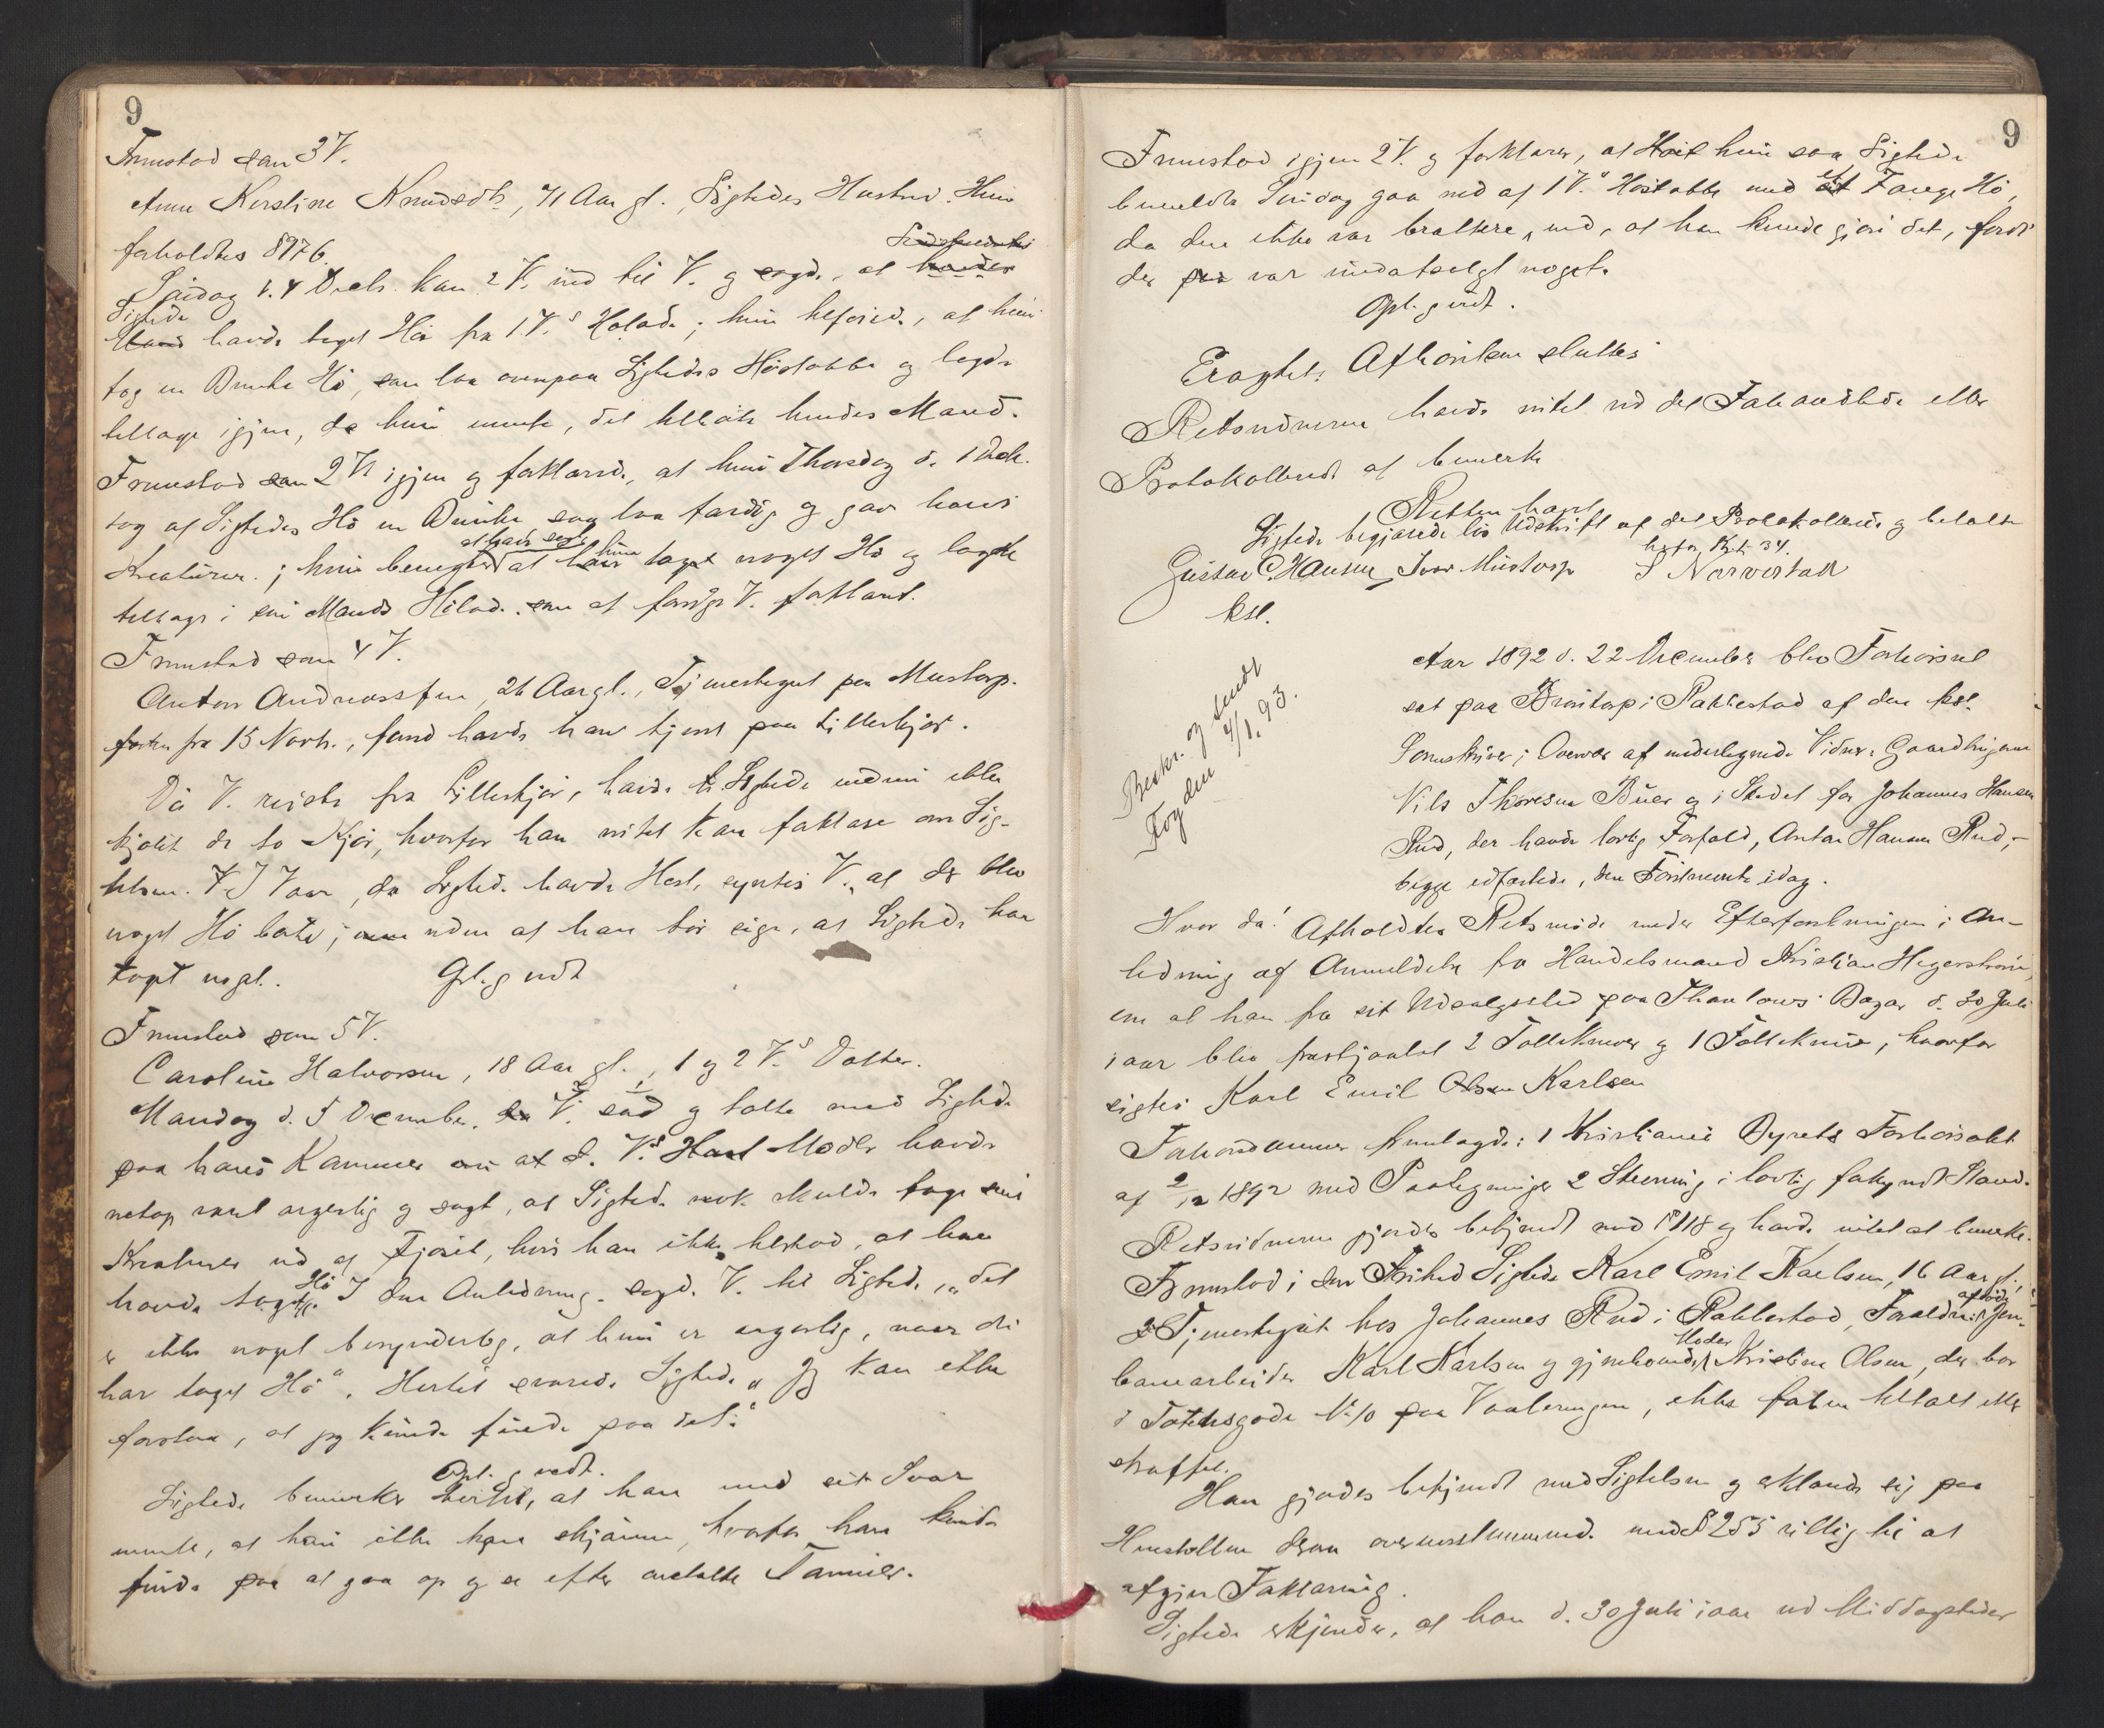 9
Fremstod som 3 V.
Anne Kirstine Knudsdt., 71 Aar gl., Sigtedes Hustru. Hun
forholdtes § 176.
Søndag d. 4 Decbr. kom 2 V. ind til V. og sagde, at
Sigtede havde taget Hø fra 1 V.s Hølade; hun tilføiede, at hun
tog en Dunke Hø, som laa ovenpaa Sigtedes Høstabbe og lagde
tilbage igjen, da hun mente, det tilhørte hendes Mand.
Fremstod som 2 V. igjen og forklarede, at hun Thorsdag d. 1 Decb.
tog af Sigtedes Hø en Dunke, som laa færdig og gav hans
Kreaturer; hun benegter at have sagt at hun tog noget Hø og lagde
tilbage i sin Mands Hølade, som af forrige V. forklaret.
Fremstod som 4 V.
Anton Andreassen, 26 Aar gl., Tjenestegut paa Mustorp.
fra 15 Novb., forud havde han tjent paa Lillekjær.
Da V. reiste fra Lillekjær, havde Sigtede endnu ikke
kjøbt de to Kjør, hvorfor han intet kan forklare om Sig-
telsen. I Vaar, da Sigtede havde Hest, syntes V., at der blev
noget Hø borte; uden at han tør sige, at Sigtede har
taget noget. Opl. g vedt
Fremstod som 5 V.
Caroline Halvorsen, 18 Aar gl., 1 og 2 V.s Datter.
Mandag d. 5 December. V. sad og talte med Sigtede
paa hans Kammer om at V.s Moder havde
netop været ærgerlig og sagt, at Sigtede nok skulde tage sine
Kreaturer ud af Fjøset, hvis han ikke tilstod, at han
havde taget Hø. I den Anledning sagde V. til Sigtede, "det
er ikke noget besynderlig, at hun er ærgerlig, naar du
har taget Hø". Hertil svarede Sigtede "Jeg kan ikke
forstaa, at jeg kunde finde paa det."
Opl. g vedt.
Sigtede bemærker hertil, at han med sit Svar
mente, at han ikke kan skjønne, hvorfor han kunde
finde paa at gaa op og se efter omtalte Tømmer.
9
Fremstod igjen 2 V. og forklarer, at hun saa Sigtede
bemeldte Søndag gaa ned af 1 V.s Høstabbe med et Fange Hø,
da der ikke var brattere, end, at han kunde gjøre det, fordi
der var nedatselgt noget.
Opl. g vedt.
Eragtet: Afhørelsen sluttes
Retsvidnerne havde intet ved det Forhandlede eller
Protokollerede at bemærke
Retten hævet
Sigtede begjærede lov Udskrift af det Protokollerede og betalte
herfor Kr.
Gustav C. Hansen Ivar Mustorp S Narvestad
kst.
Aar 1892 d. 22 December blev Forhørsret
sat paa Brøntorp i Rakkestad af den kst.
Sorenskriver; Overvær af undertegnede Vidner: Gaardbrugerne
Nils Thoresen Buer og i Stedet for Johannes Hansen
Rud, der havde lovlig Forfald, Anton Hansen Rud,
begge edfæstede, den Førstnævnte idag.
Beskr. og sendt
Fogden 4/1. 93.
Hvor da! Afholdtes Retsmøde under Efterforskningen i An-
ledning af Anmeldelse fra Handelsmand Kristian Hegerstrøm
om at han fra sit Udsalgssted paa Thaulows Bazar d. 30 Juli
iaar blev frastjaalet 2 Tolleknive og 1 Follekniv, hvorfor
sigtes Karl Emil Olsen Karlsen
Forhørsdommeren fremlagde: 1 Kristiania Byrets Forhørsakt
af 2/12 1892 med Paategninger 2 Stevning i lovlig forkyndt Stand.
Retsvidnerne gjordes bekjendt med § 118 og havde intet at bemærke.
Fremstod i den Frihed Sigtede Karl Emil Karlsen, 16 Aar gl.,
Tjenestegut hos Johannes Rud i Rakkestad, Forældre: afdøde Jern-
banearbeider Karl Karlsen og gjenlevende Moder Kristine Olsen, der bor
i Totensgade No 10 paa Vaalerengen, ikke før tiltalt eller
straffet.
Han gjordes bekjendt med Sigtelsen og erklærede sig paa
Henstillen derom overensstemmende med § 255 villig til at
afgive Forklaring.
Sigtede erkjender, at han d. 30 Juli iaar ved Middagstider